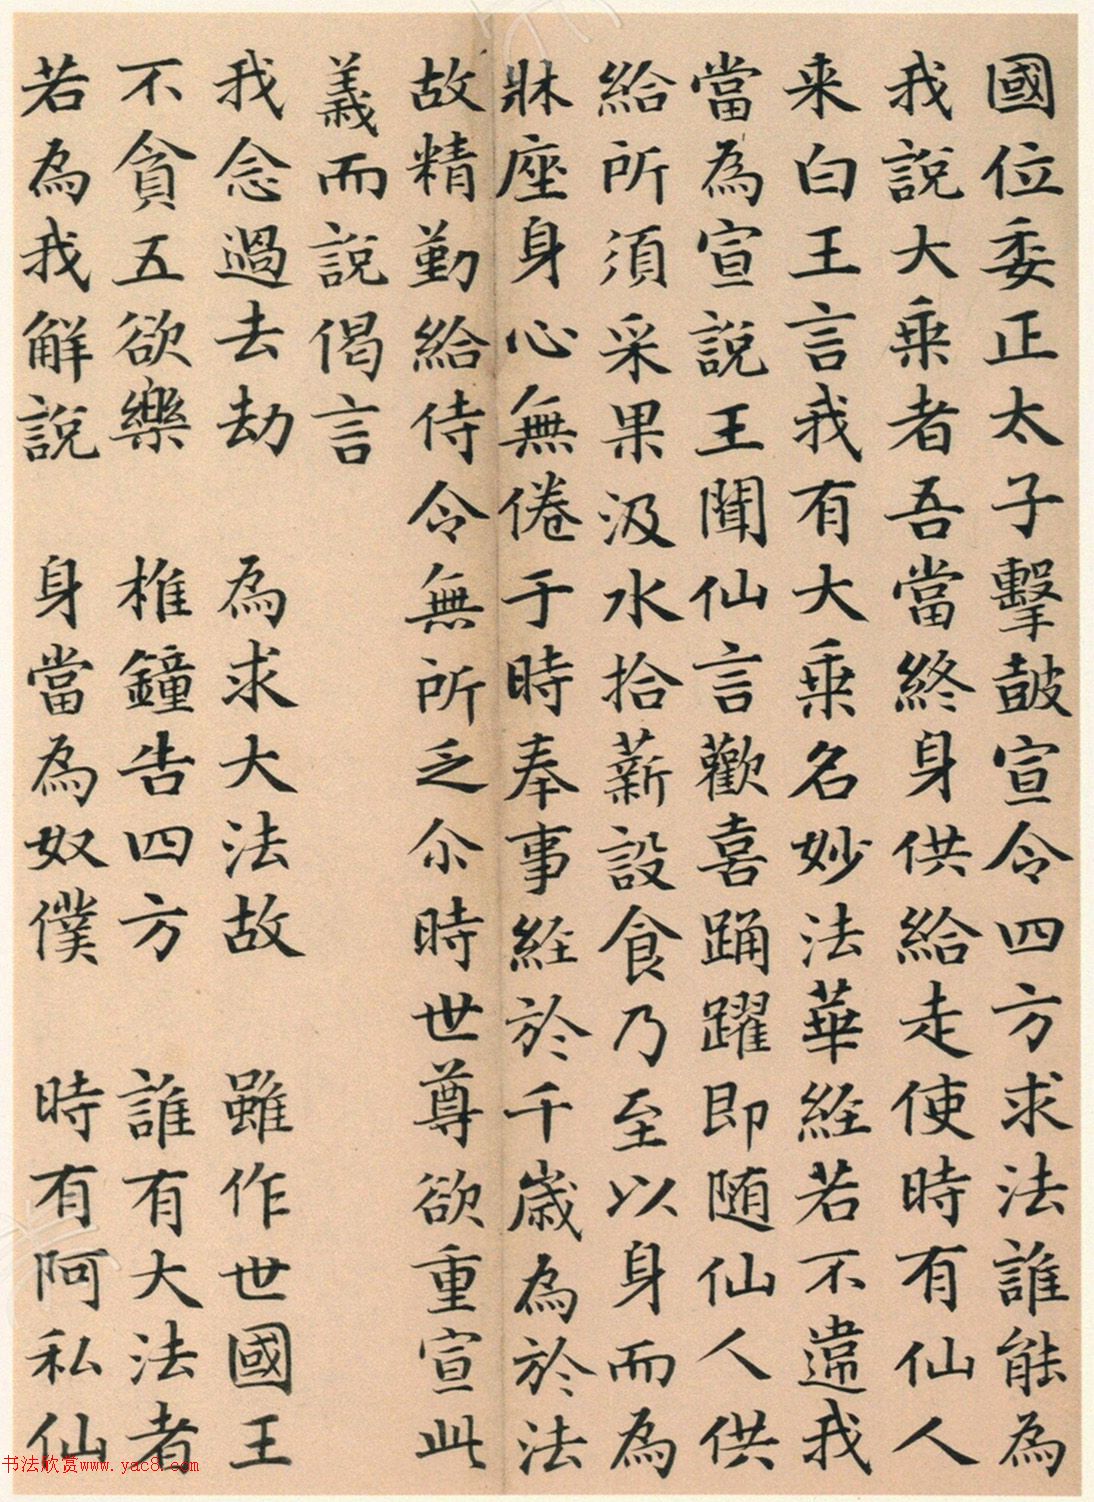 國位委正太子擊皷宣令四方求法誰能為
我說大乗者吾當終身供給走使時有仙人
来白王言我有大乗名妙法華経若不違我
當為宣說王聞仙言歡喜踊躍即随仙人供
給所須采果汲水拾薪設食乃至以身而為
牀座身心無倦于時奉事経於千歳為於法
故精勤給侍令無所乏尒時世尊欲重宣此
義而說偈言
我念過去劫　為求大法故　雖作世國王
不貪五欲樂　椎鐘告四方　誰有大法者
若為我解說　身當為奴僕　時有阿私仙
书法欣赏www.yac8.com